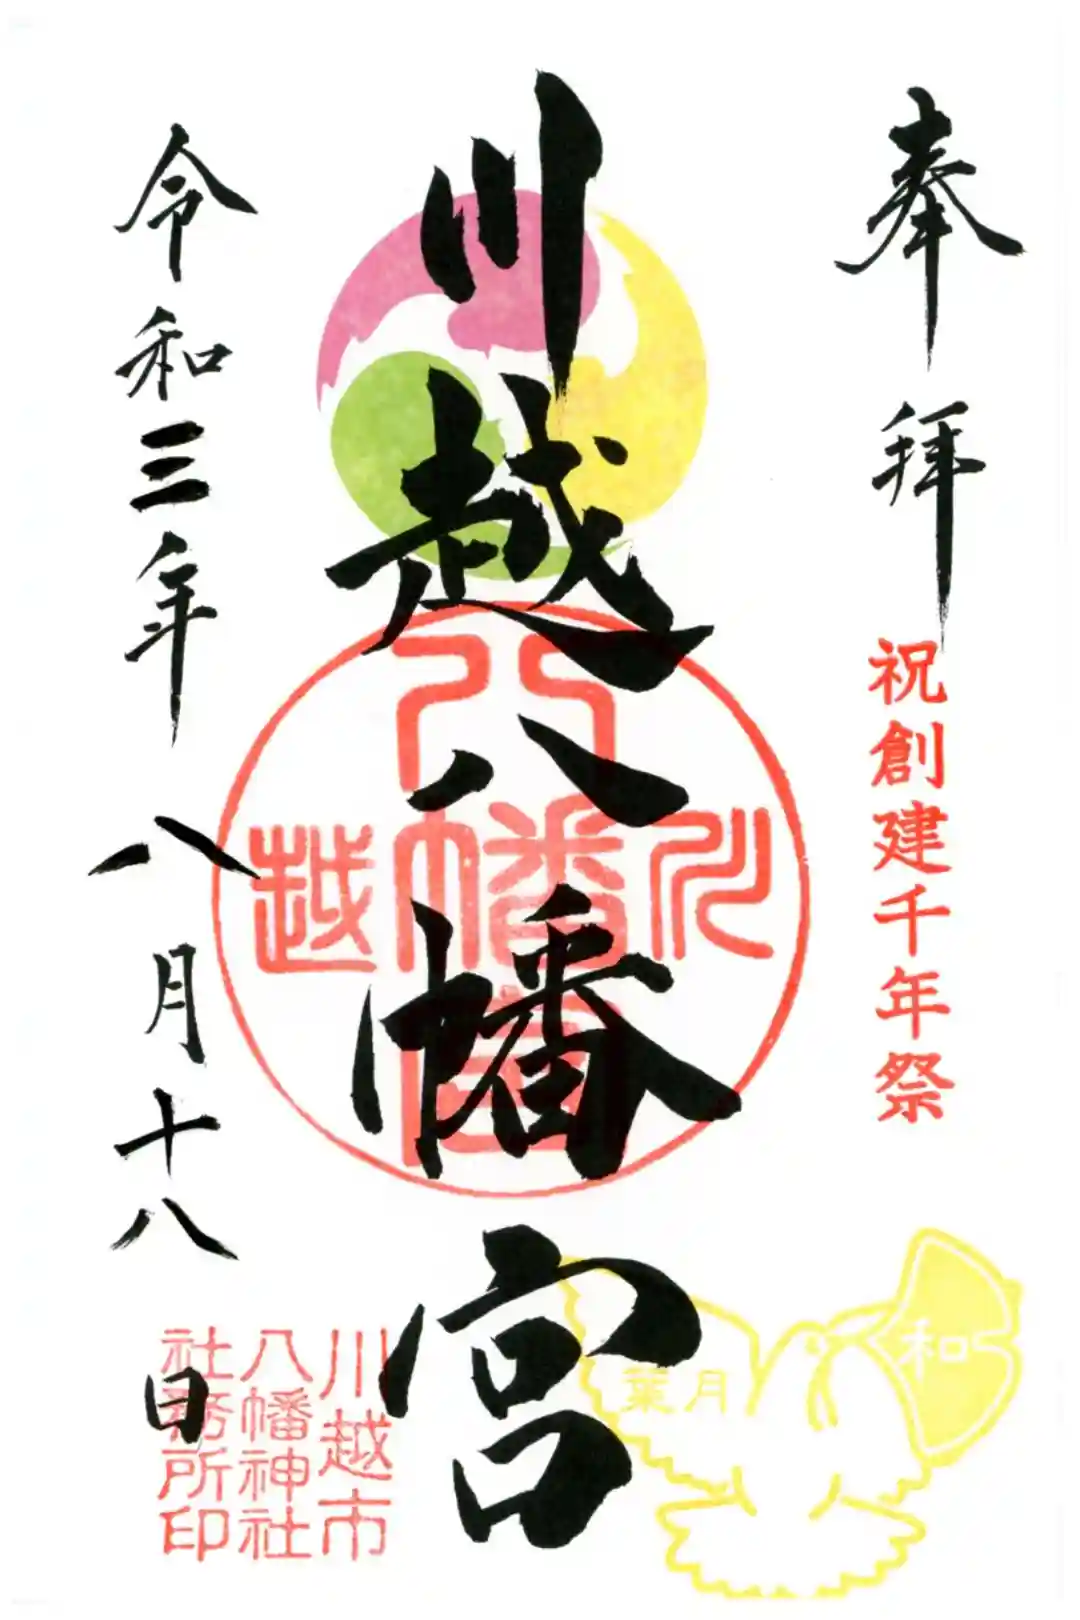 奉拝
祝創建千年祭
川越八幡宮
川越
八幡宮
令和三年八月十八日
川越市
八幡神社
社務所印
葉月
和